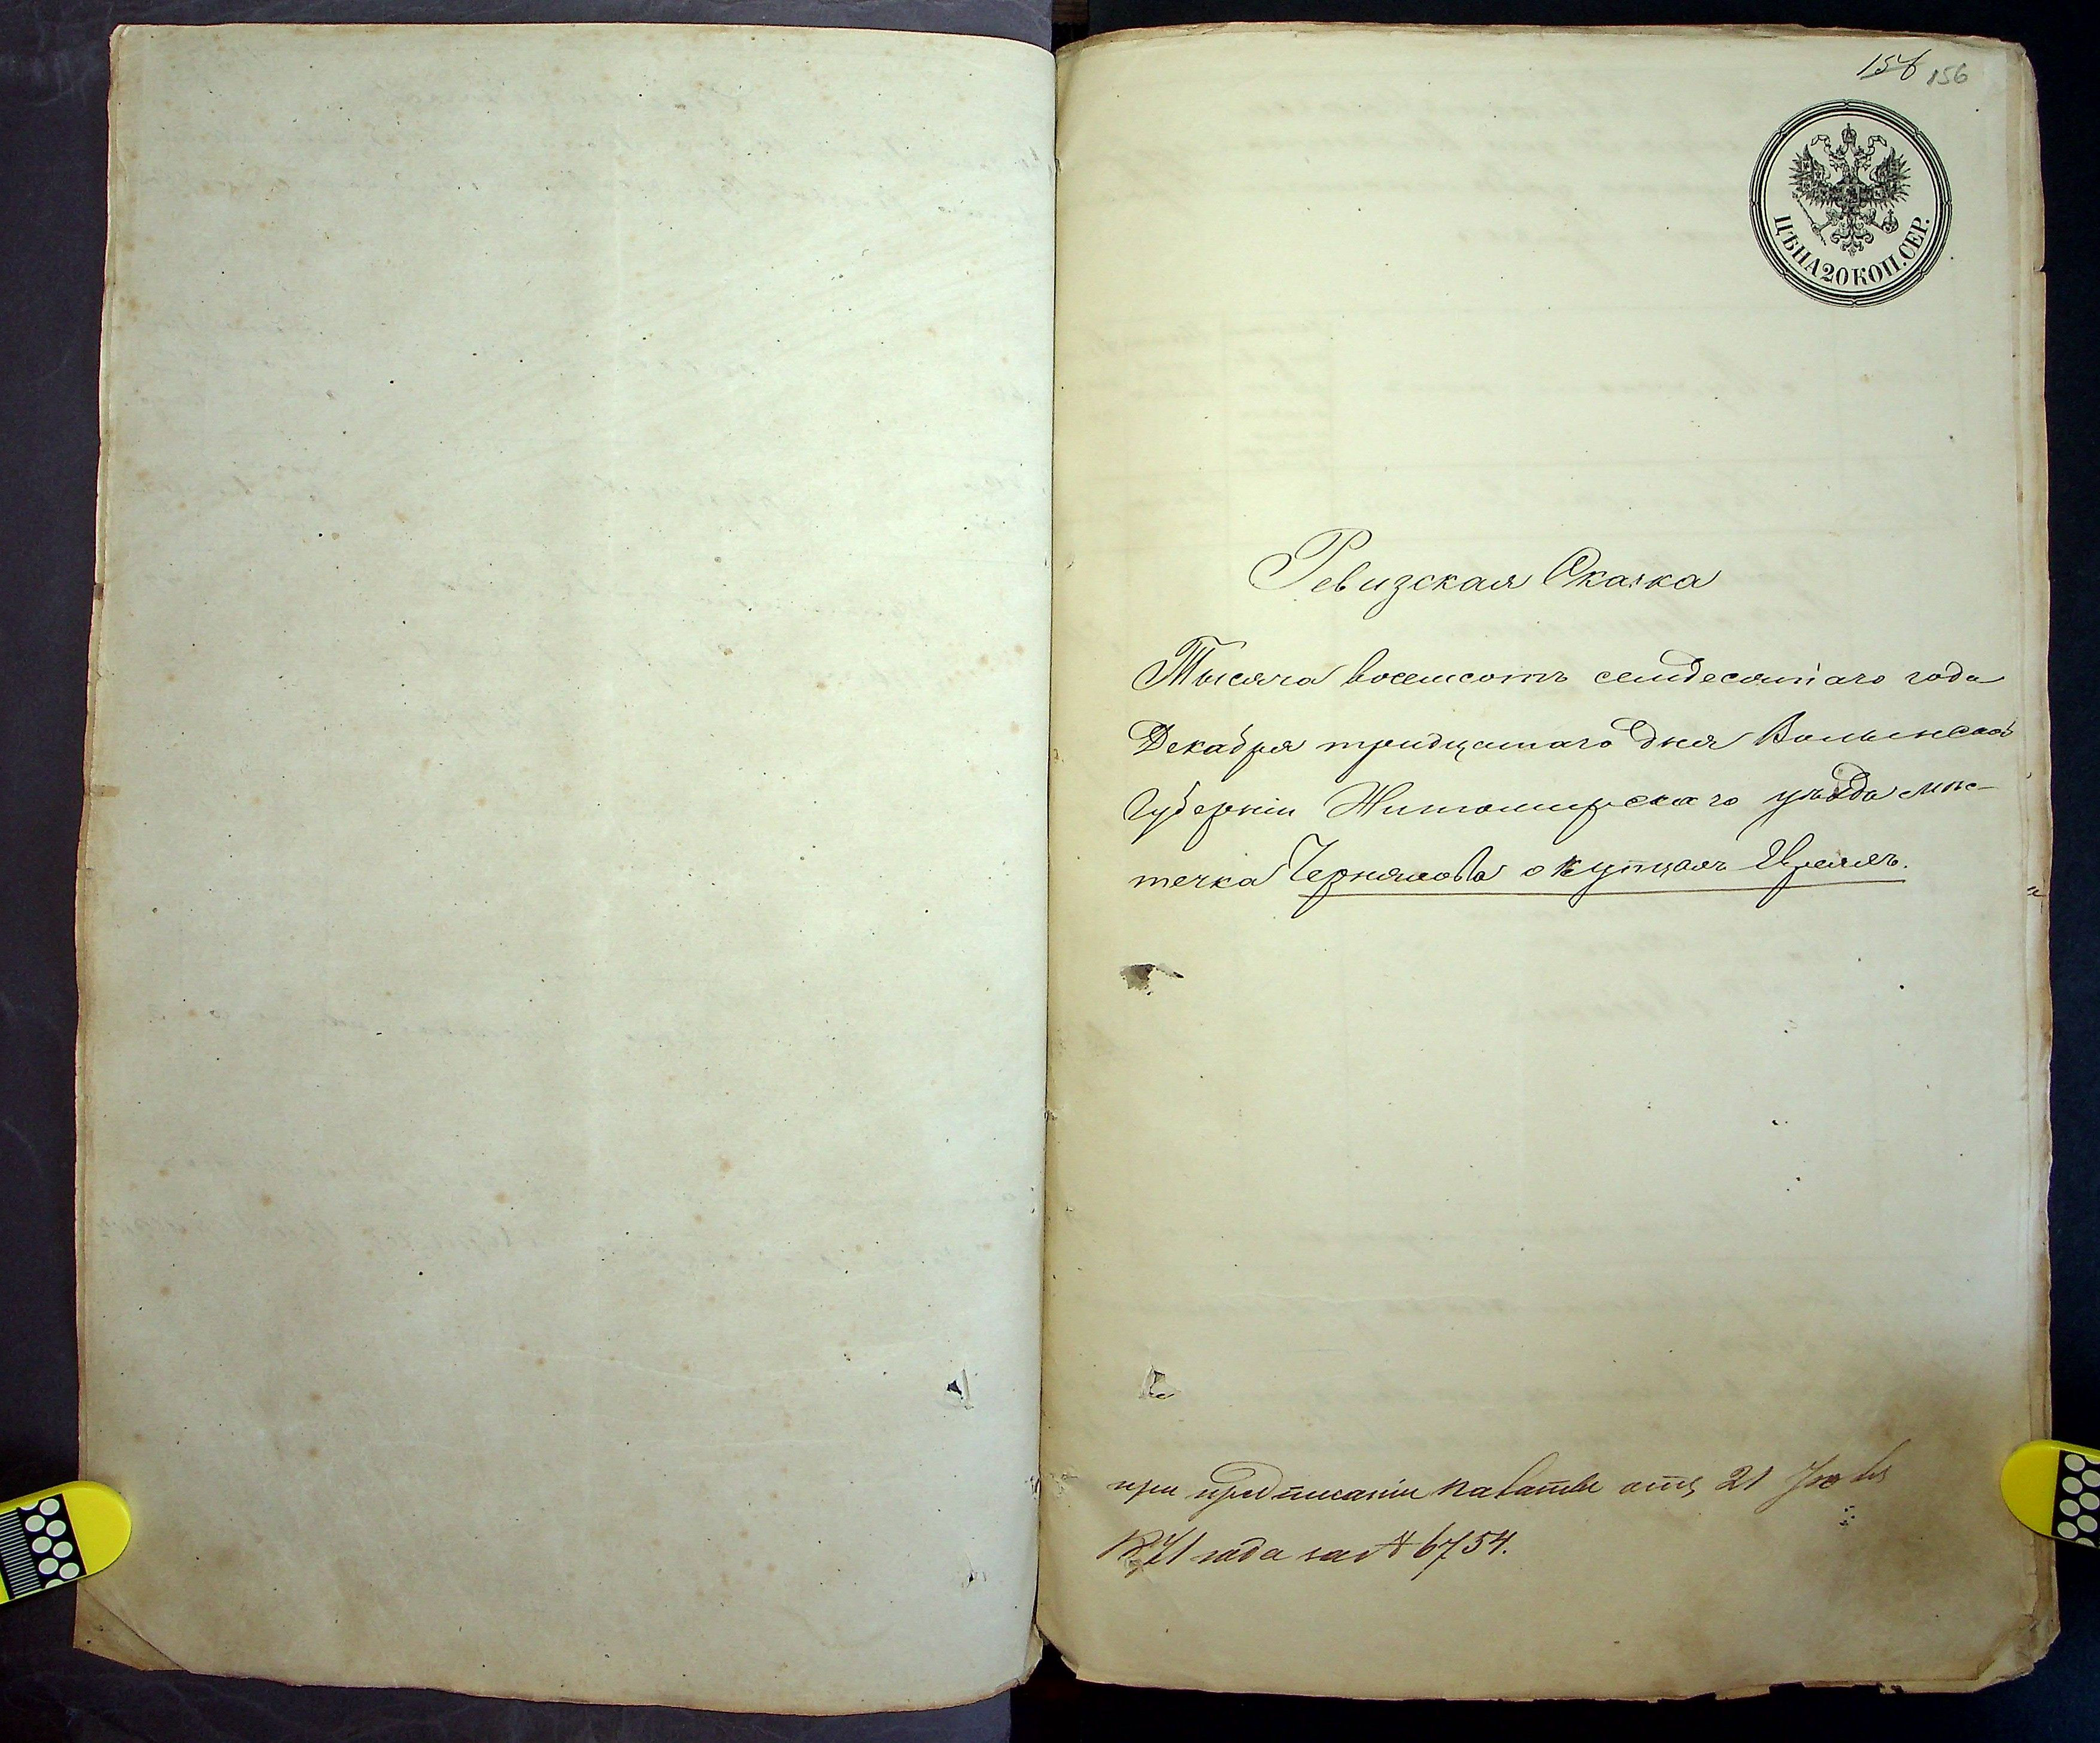 156 156
ЦѢНА 20 КОП. СЕР.
Ревизская Сказка
Тысяча восемсотъ семдесятаго года
Декабря тридцатаго дня Волынской
Губерніи Житомирскаго уѣзда мѣс-
течка Черняхова о купцахъ Евреяхъ.
при предписаніи Палаты отъ 21
1871 года за № 6754.